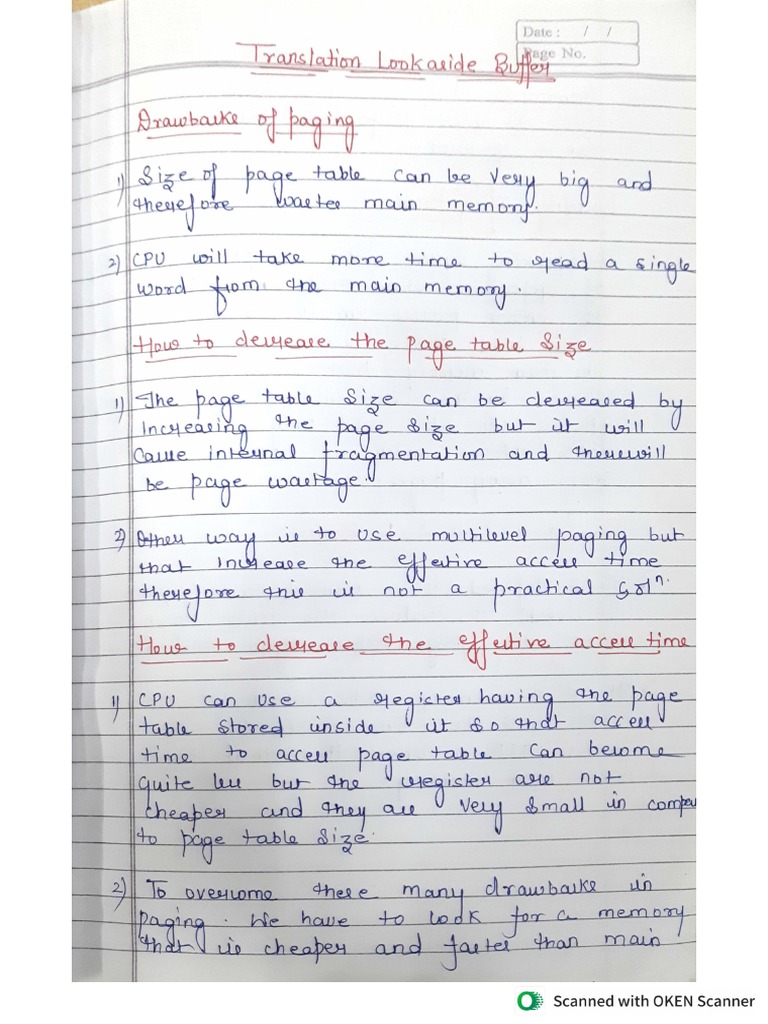 Date : / /
Page No.
Translation Lookaside Buffer
Drawbacks of paging
1) Size of page table can be very big and
therefore wastes main memory.
2) CPU will take more time to read a single
word from the main memory.
How to decrease the page table Size
1) The page table Size can be decreased by
Increasing the page Size but it will
Cause internal fragmentation and there will
be page wastage.
2) Other way is to use multilevel paging but
that Increase the effective access time
therefore this is not a practical solⁿ.
How to decrease the effective access time
1) CPU can use a register having the page
table stored inside it so that access
time to access page table can become
quite less but the register are not
cheaper and they are very small in compare
to page table size.
2) To overcome these many drawbacks in
paging. We have to look for a memory
that is cheaper and faster than main
Scanned with OKEN Scanner